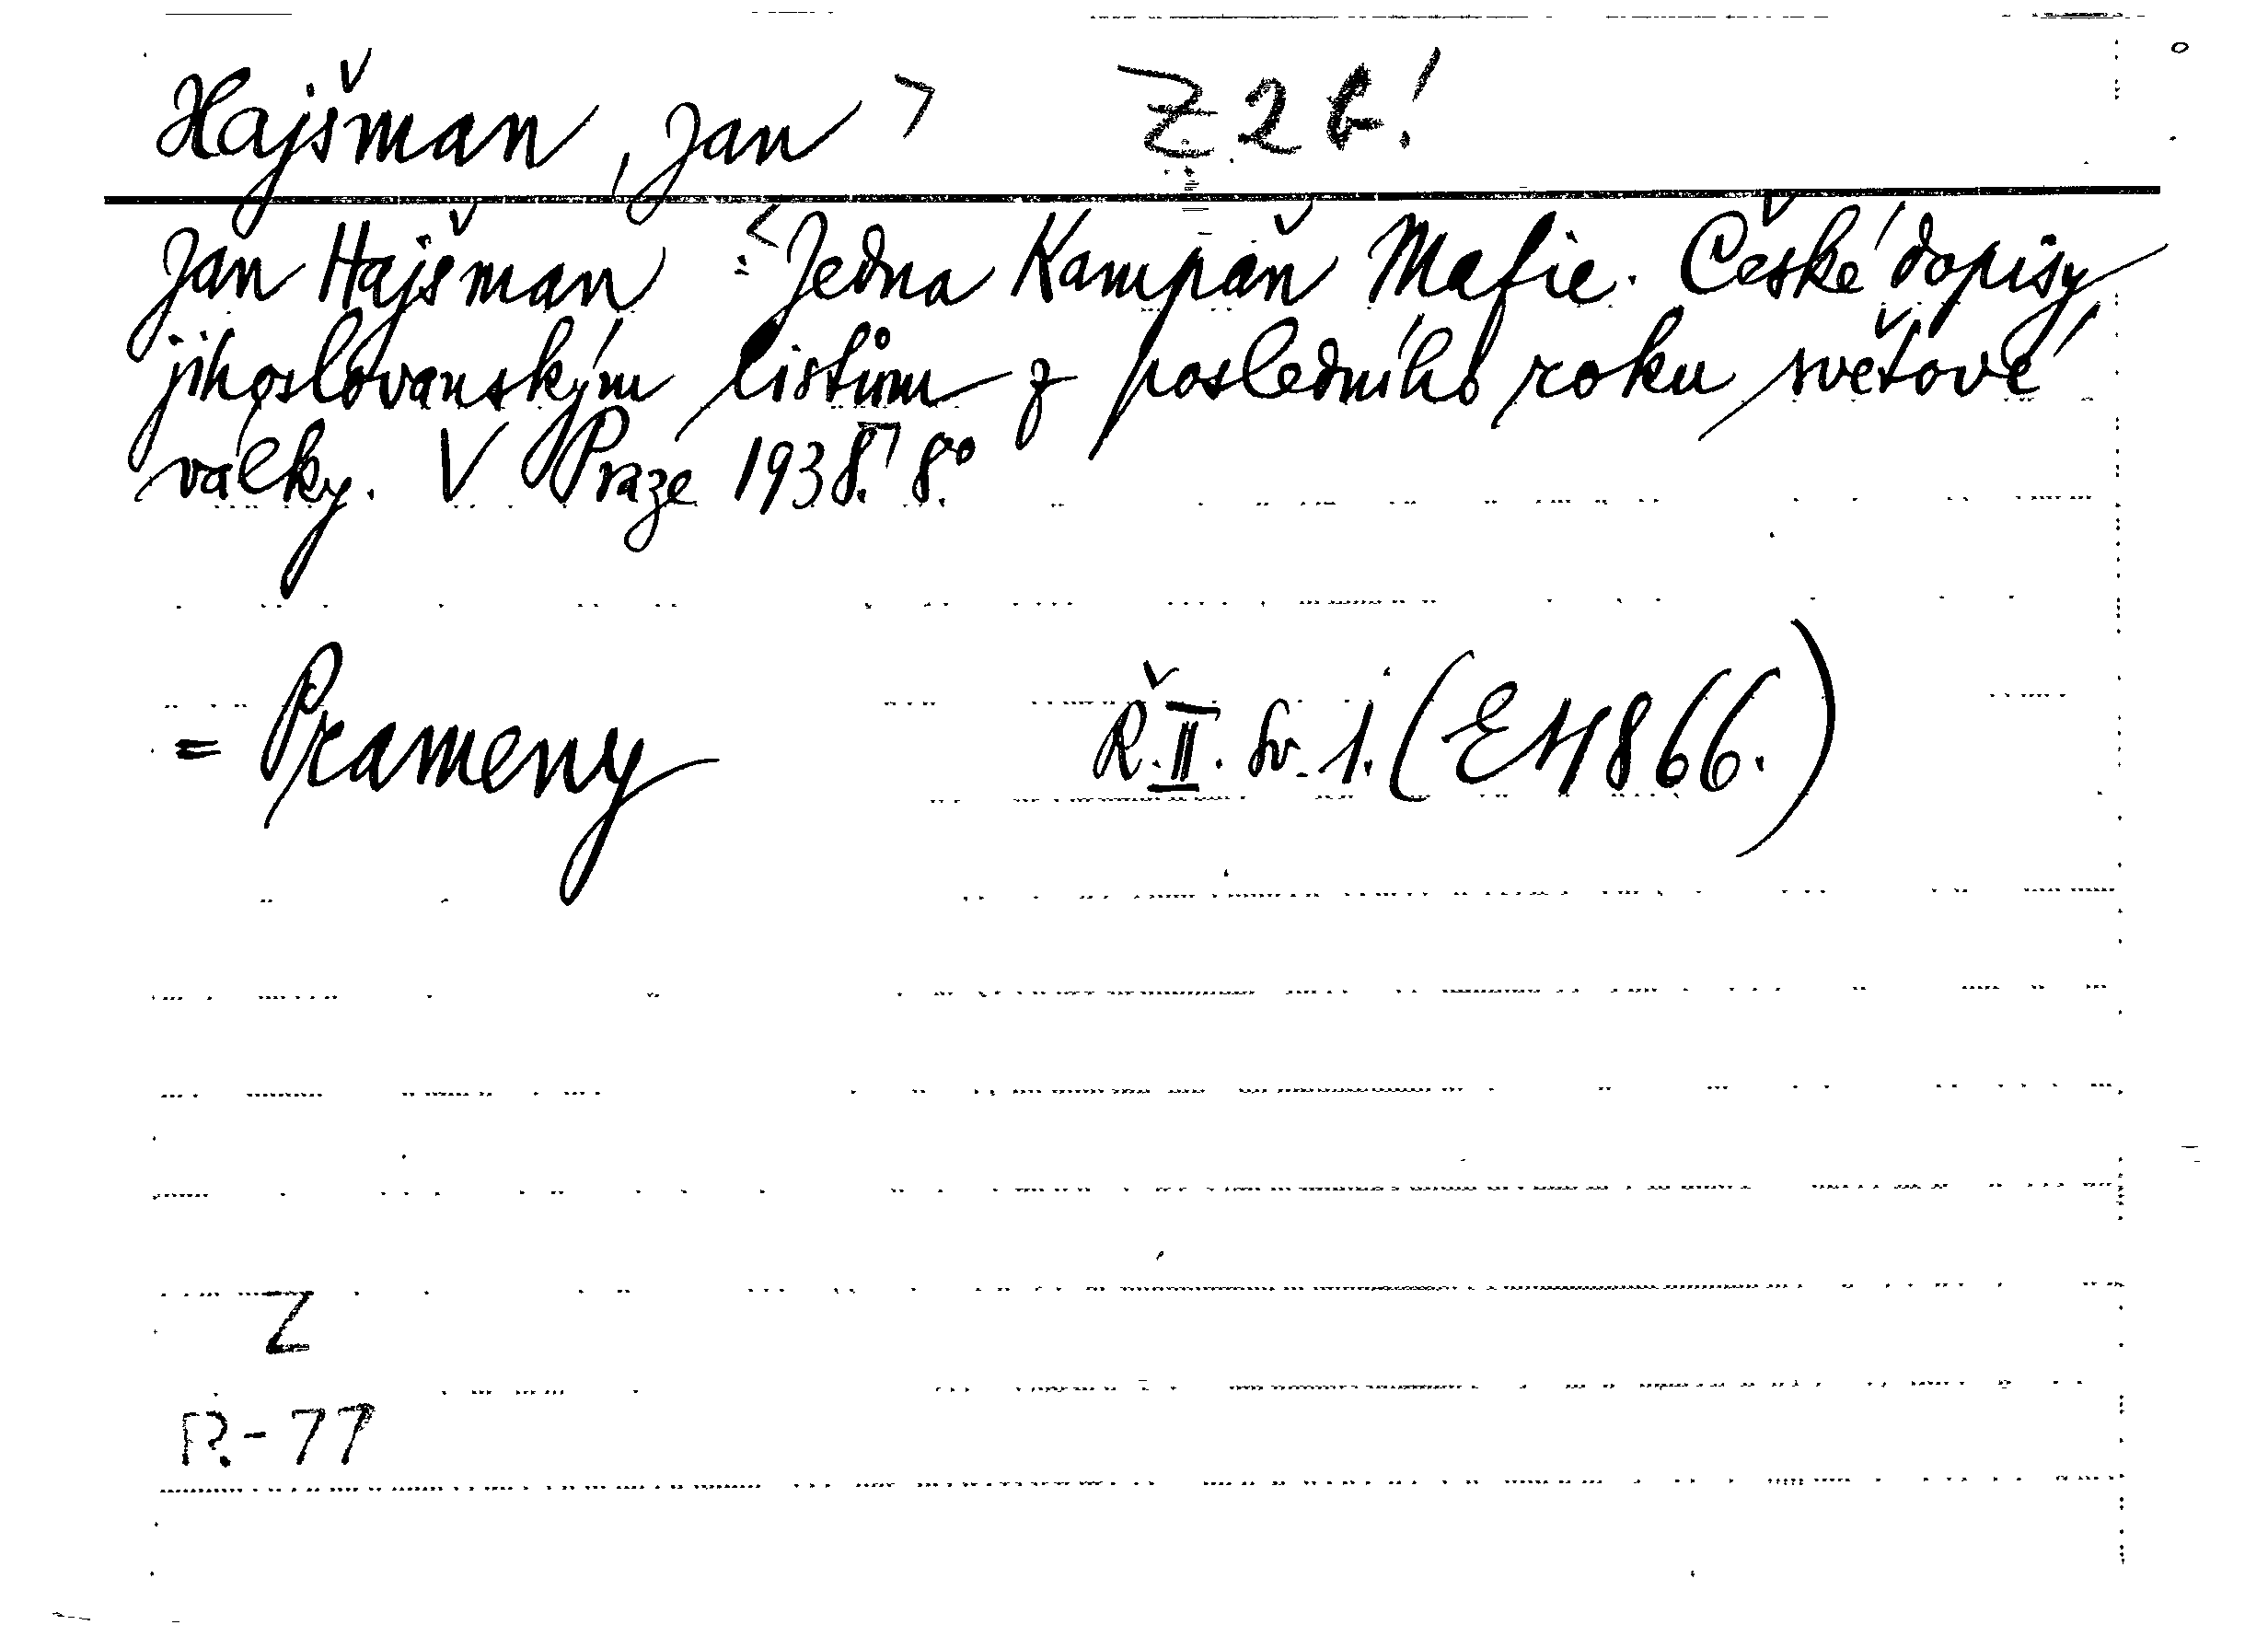 Hajšman, Jan ⌝ Z 2 b!
Jan Hajšman : <Jedna Kampaň Mafie. České dopisy
jihoslovanským listům z posledního roku světové
války. V Praze 1938.⌝ 8.°
= Prameny Ř. II. sv. 1. (E H 866.)
Z
R.-77